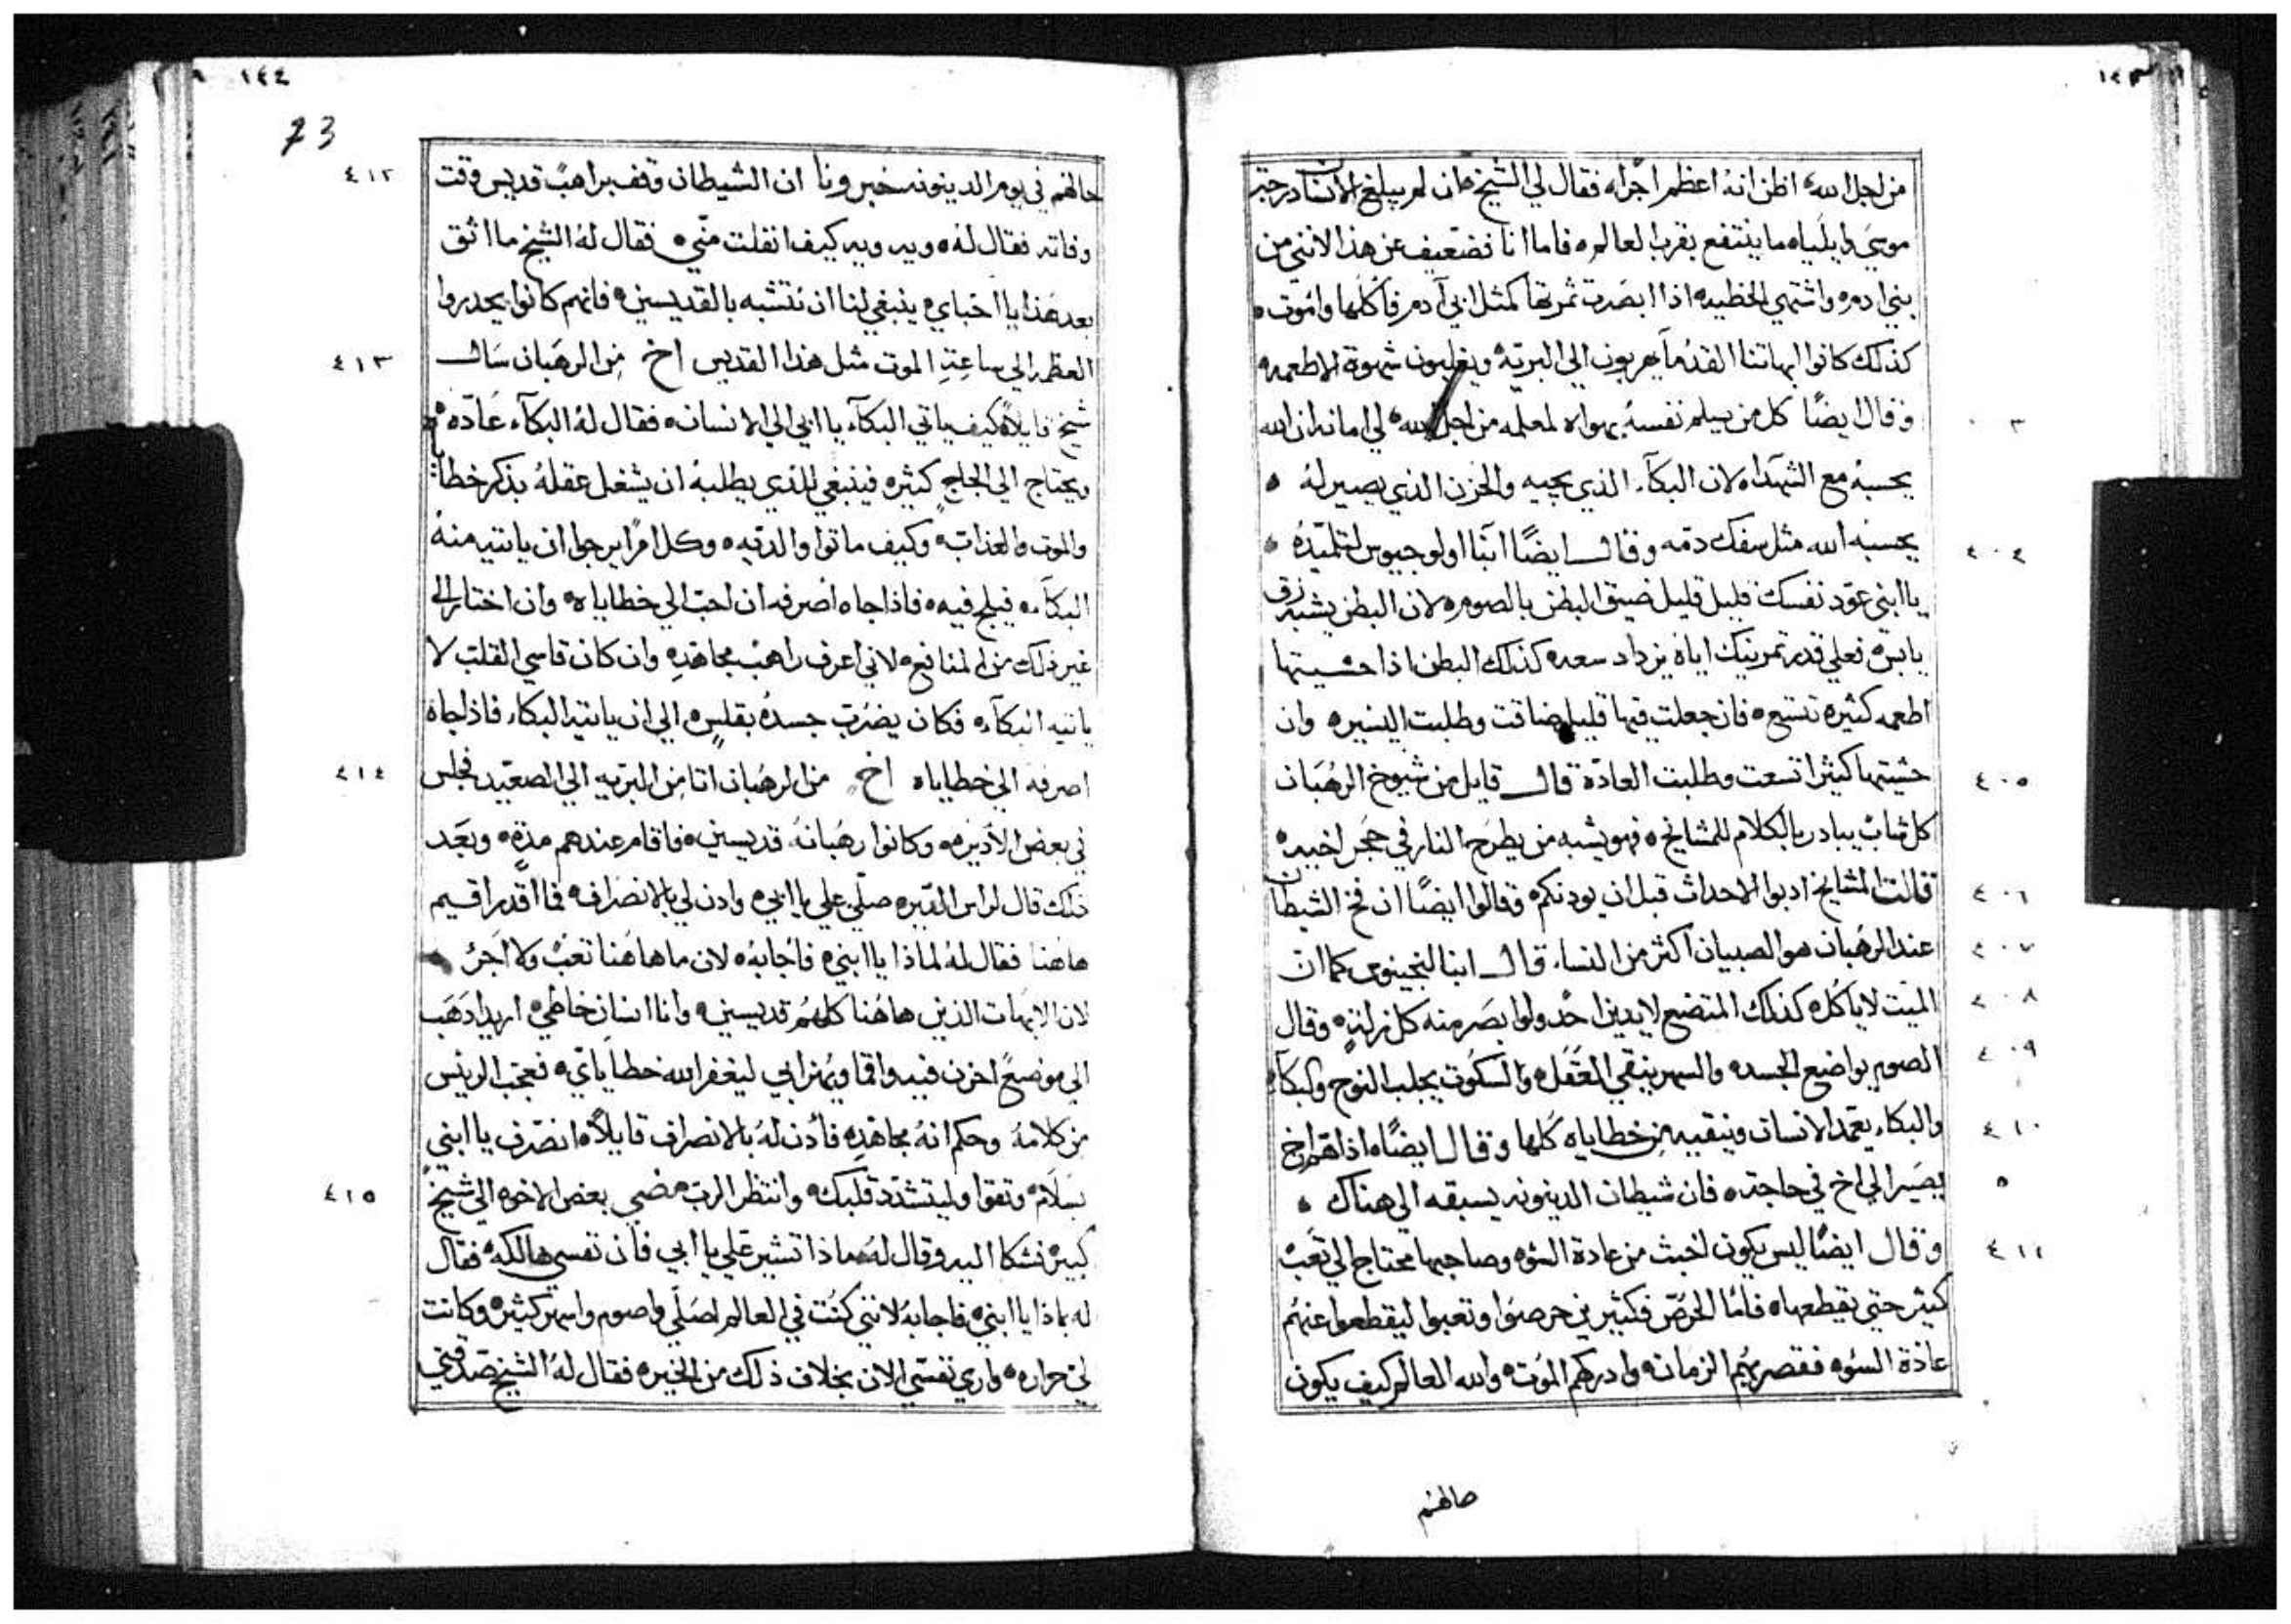 ١٤٣
من اجل الله اظن انه اعظم اجرا فقال لي الشيخ ان لم يبلغ الانسان درجة
موسي وايلياه ما ينتفع بقرب العالم فاما انا فضعيف عن هذا لانني من
بني ادم واشتهي الخطيه اذا ابصرت ثمرتها كمثل ابي آدم فأكلها واموت
كذلك كانوا ابهاتنا القدمآ يهربون الي البريه ويغلبون شهوة الاطعمه
٣
وقال ايضًا كل من يسلم نفسه بهواه لمعلمه من اجل الله لي امانه ان الله
يحسبه مع الشهداه لان البكآء الذي يجيه والحزن الذي يصير له
٤٠٤
يحسبه الله مثل سفك دمه وقال ايضًا انبا اولوجيوس لتلميذه
يا ابني عود نفسك قليل قليل ضيق البطن بالصوم لان البطن يشبه زق
يابس فعلي قدر تمرينك اياه يزداد سعه كذلك البطن اذا حشيتها
اطعمه كثيره تتسع فان جعلت فيها قليل ضاقت وطلبت اليسير وان
٤٠٥
حشيتها كثيرا تسعت وطلبت العادة قال قايل من شيوخ الرهبان
كل شاب يبادر بالكلام للمشايخ فهو يشبه من يطرح النار في حجر اخيه
٤٠٦
قالت المشايخ ادبوا الاحداث قبل ان يودنكم وقالوا ايضًا ان فخ الشيطان
٤٠٧
عند الرهبان هو الصبيان اكثر من النساء قال انبا لنجينوس كما ان
٤٠٨
الميت لا يأكل كذلك المتضع لا يدين احد ولو ابصر منه كل زلة وقال
٤٠٩
الصوم يواضع الجسد والسهر ينقي العقل والسكوت يجلب النوح والبكآء
٤١٠
والبكاء يعمد الانسان وينقيه من خطاياه كلها وقال ايضًا اذا هم اخ
يصير الي اخ في حاجة فان شيطان الدينونه يسبقه الي هناك
٤١١
وقال ايضًا ليس يكون اخبث من عادة السوء وصاحبها محتاج الي تعب
كثير حتي يقطعها فامًا الحرص فكثيرين حرصوا وتعبوا ليقطعوا عنهم
عادة السوء فقصر بهم الزمان وادركهم الموت والله العالم كيف يكون
حالهم
١٤٤
73
٤١٢
حالهم في يوم الدينونه خبرونا ان الشيطان وقف براهب قديس وقت
وفاته فقال له ويه ويه كيف انفلت مني فقال له الشيخ ما اثق
بعد هذا يا اخباي ينبغي لنا ان نتشبه بالقديسين فانهم كانوا يحدروا
٤١٣
العظمه الي ساعة الموت مثل هذا القديس اخ من الرهبان سال
شيخ قايلاً كيف ياتي البكآء يا ابي الي الانسان فقال له البكآء عاده
ويحتاج الي الجلج كثيره فينبغي للذي يطلبه ان يشغل عقله بذكر خطايا
والموت والعذاب وكيف ماتوا والديه وكل امرًا يرجوا ان ياتيه منه
البكآء فيلج فيه فاذا جاه اصرفه ان احب الي خطاياه وان اختار الي
غير ذلك من المنافع لاني اعرف راهب مجاهد وان كان قاسي القلب لا
ياتيه البكآء فكان يضرب جسده بقلس الي ان ياتيه البكاء فاذا جاه
٤١٤
اصرفه الي خطاياه اخ من الرهبان اتا من البريه الي الصعيد فجلس
في بعض الأديره وكانوا رهبانه قديسين فاقام عندهم مدة وبعد
ذلك قال لراس الديره صلي علي يا ابي وادن لي بالانصراف فما اقدر اقيم
هاهنا فقال له لماذا يا ابني فأجابه لان ما هاهنا تعب ولا اجر
لان الابهات الذين هاهنا كلهم قديسين وانا انسان خاطي اريد اذهب
الي موضعً احزن فيه واتما ويمزابي ليغفر الله خطاياي فعجب الريس
من كلامه وحكم انه مجاهد فأدن له بالانصراف قايلاً انصرف يا ابني
٤١٥
بسلام وتقوا وليتشدد قلبك وانتظر الرب مضي بعض الاخوه الي شيخ
كبير فشكا اليه وقال له ماذا تشير علي يا ابي فان نفسي هالكه فقال
له بماذا يا ابني فاجابه لانني كنت في العالم اصلي واصوم واسهر كثير وكانت
لي حراره واري نفسي الان بخلاف ذلك من الخير فقال له الشيخ صدقني